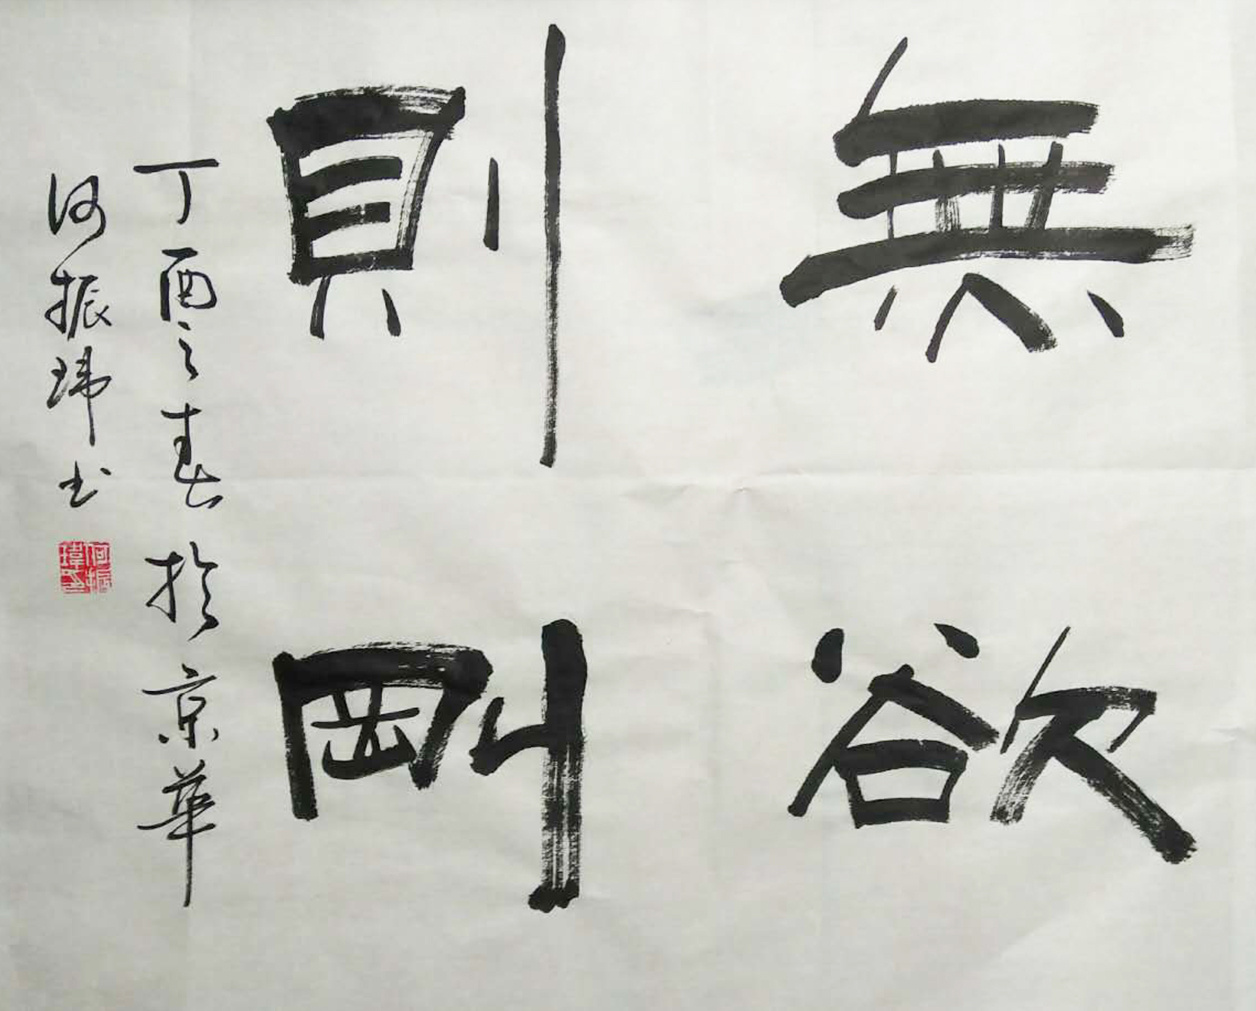 無欲
則剛
丁酉之春於京華
何振瑋书
何振瑋印